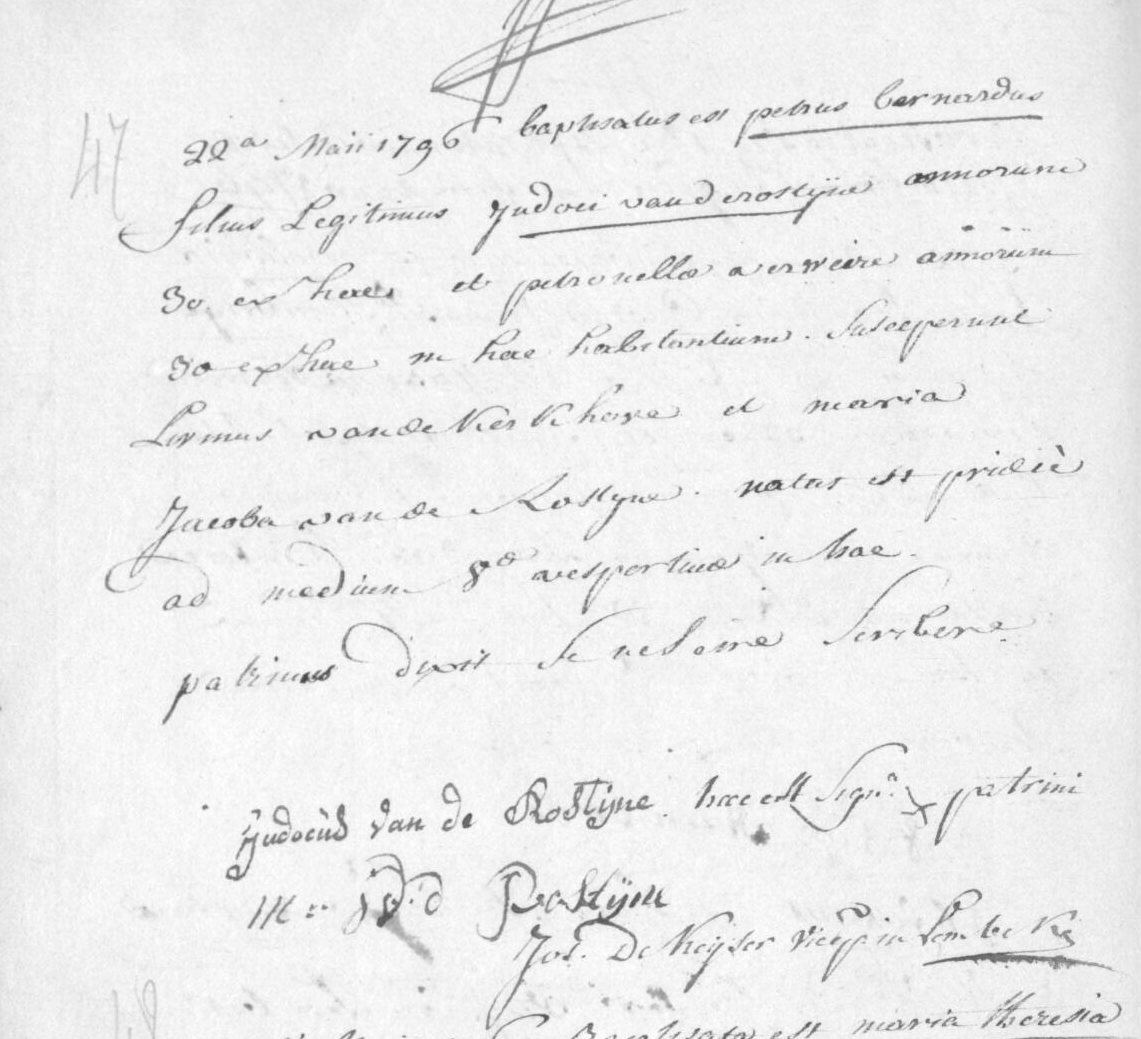 47
22a Maii 1796 baptisatus est petrus bernardus
filius Legitimus Judoci vanderostijne annorum
30 ex hac et petronellæ averweire annorum
30 ex hac in hac habitantium. Susceperunt
Livinus vande Kerkhove et maria
Jacoba van de Rostyne. natus est pridie
ad medium 8æ vespertinæ in hac.
patrinus dixit se nescire scribere
Judocus van de Rostijne hoc est Sign: X patrini
Rostijne
Jos. De Keijser in Lembeke
48
Baptisata est maria theresia